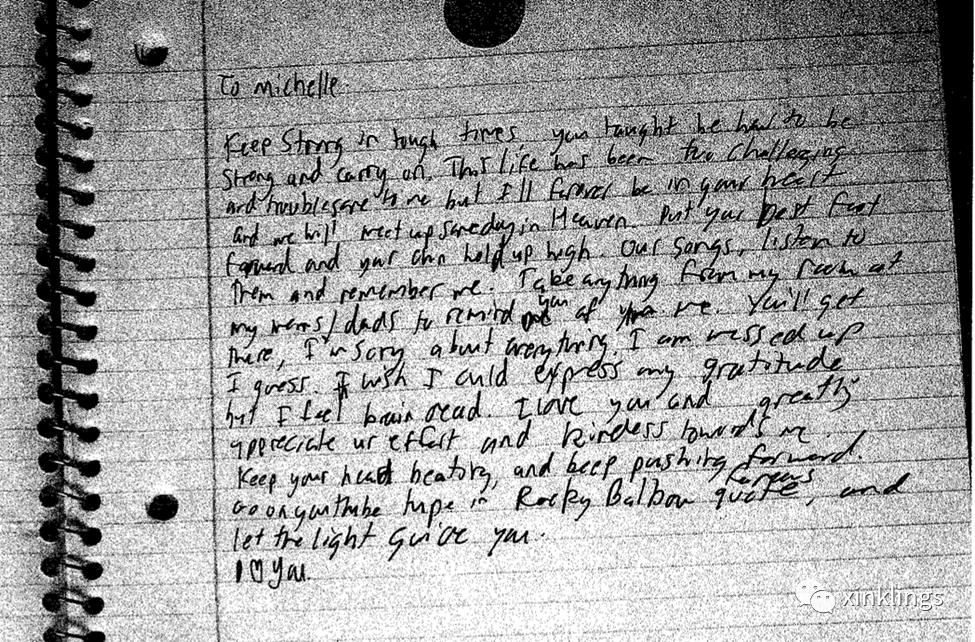 To Michelle
Keep Strong in tough times, you taught me how to be
strong and carry on. This life has been too challenging
and troublesome to me but I'll forever be in your heart
and we will meet up someday in Heaven. Put your best foot
forward and your chin held up high. Our songs, listen to
them and remember me. Take anything from my room at
my moms/dads to remind you of me. You'll get
there, I'm sorry about everything. I am messed up
I guess. I wish I could express my gratitude
but I feel brain dead. I love you and greatly
appreciate ur effort and kindess towards me.
Keep your heart beating, and keep pushing forward.
Go on youtube type in Rocky Balboa famous quote, and
let the light Guide you.
I ♡ You.
xinklings